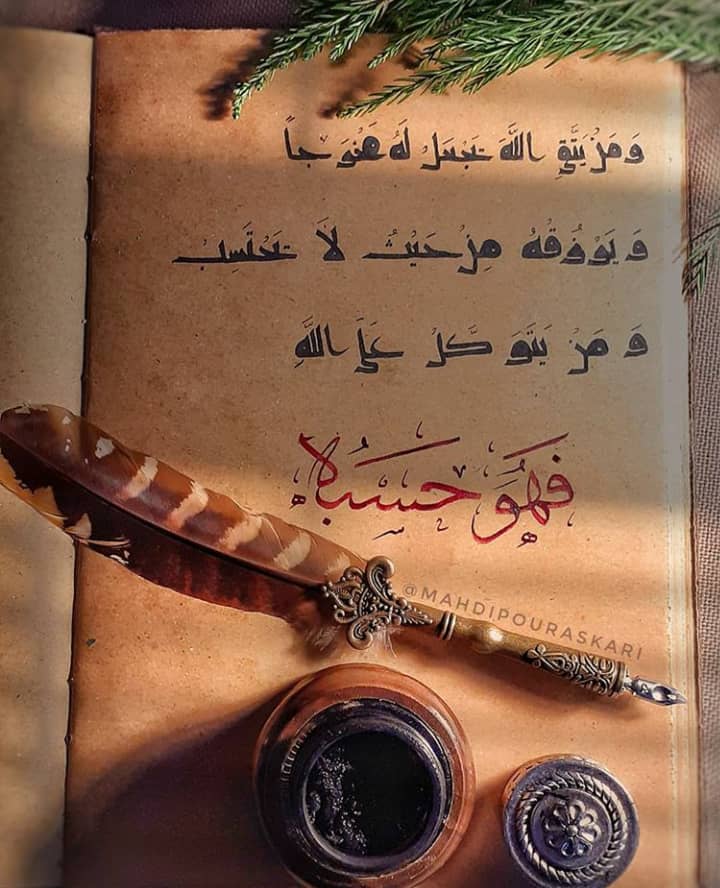 وَ مَنْ يَتَّقِ اللَّهَ يَجْعَلْ لَهُ مَخْرَجاً
وَ يَرْزُقْهُ مِنْ حَيْثُ لَا يَحْتَسِبُ
وَ مَنْ يَتَوَكَّلْ عَلَى اللَّهِ
فَهُوَ حَسْبُهُ
@MAHDIPOURASKARI